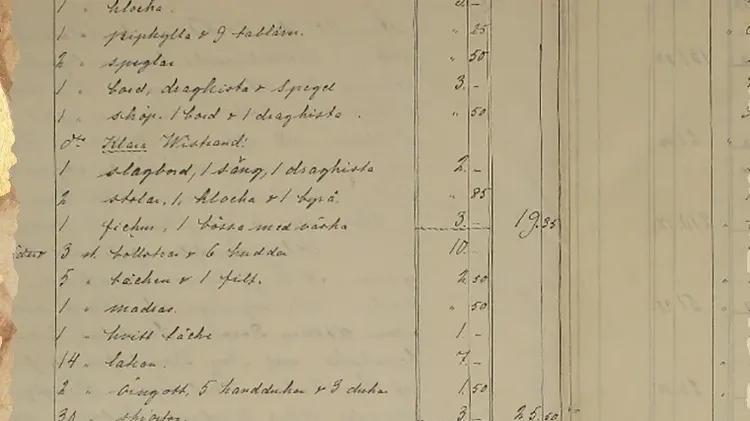 1 " klocka.
1 " piphylla & 9 tablåur. " 25
2 " speglar " 50
1 " bord, draghista & Spegel 3. -
1 " skåp. 1 bord & 1 draghista. " 50
d:o Klara Wistrand:
1 slagbord, 1 säng, 1 draghista 2. -
2 " stolar, 1, klocka & 1 byrå. " 85
1 " 1 bössa med väska 3 - 19.35
3 st. bolstrar & 6 kuddar 10. -
5 " täcken & 1 filt. 2.50
1 " madras. " 50
1 " hvitt täcke 1. -
14 " lakan. 7. -
2 " örngott, 5 handdukar & 3 dukar 1.50
30 " skjortor. 3. - 25.50